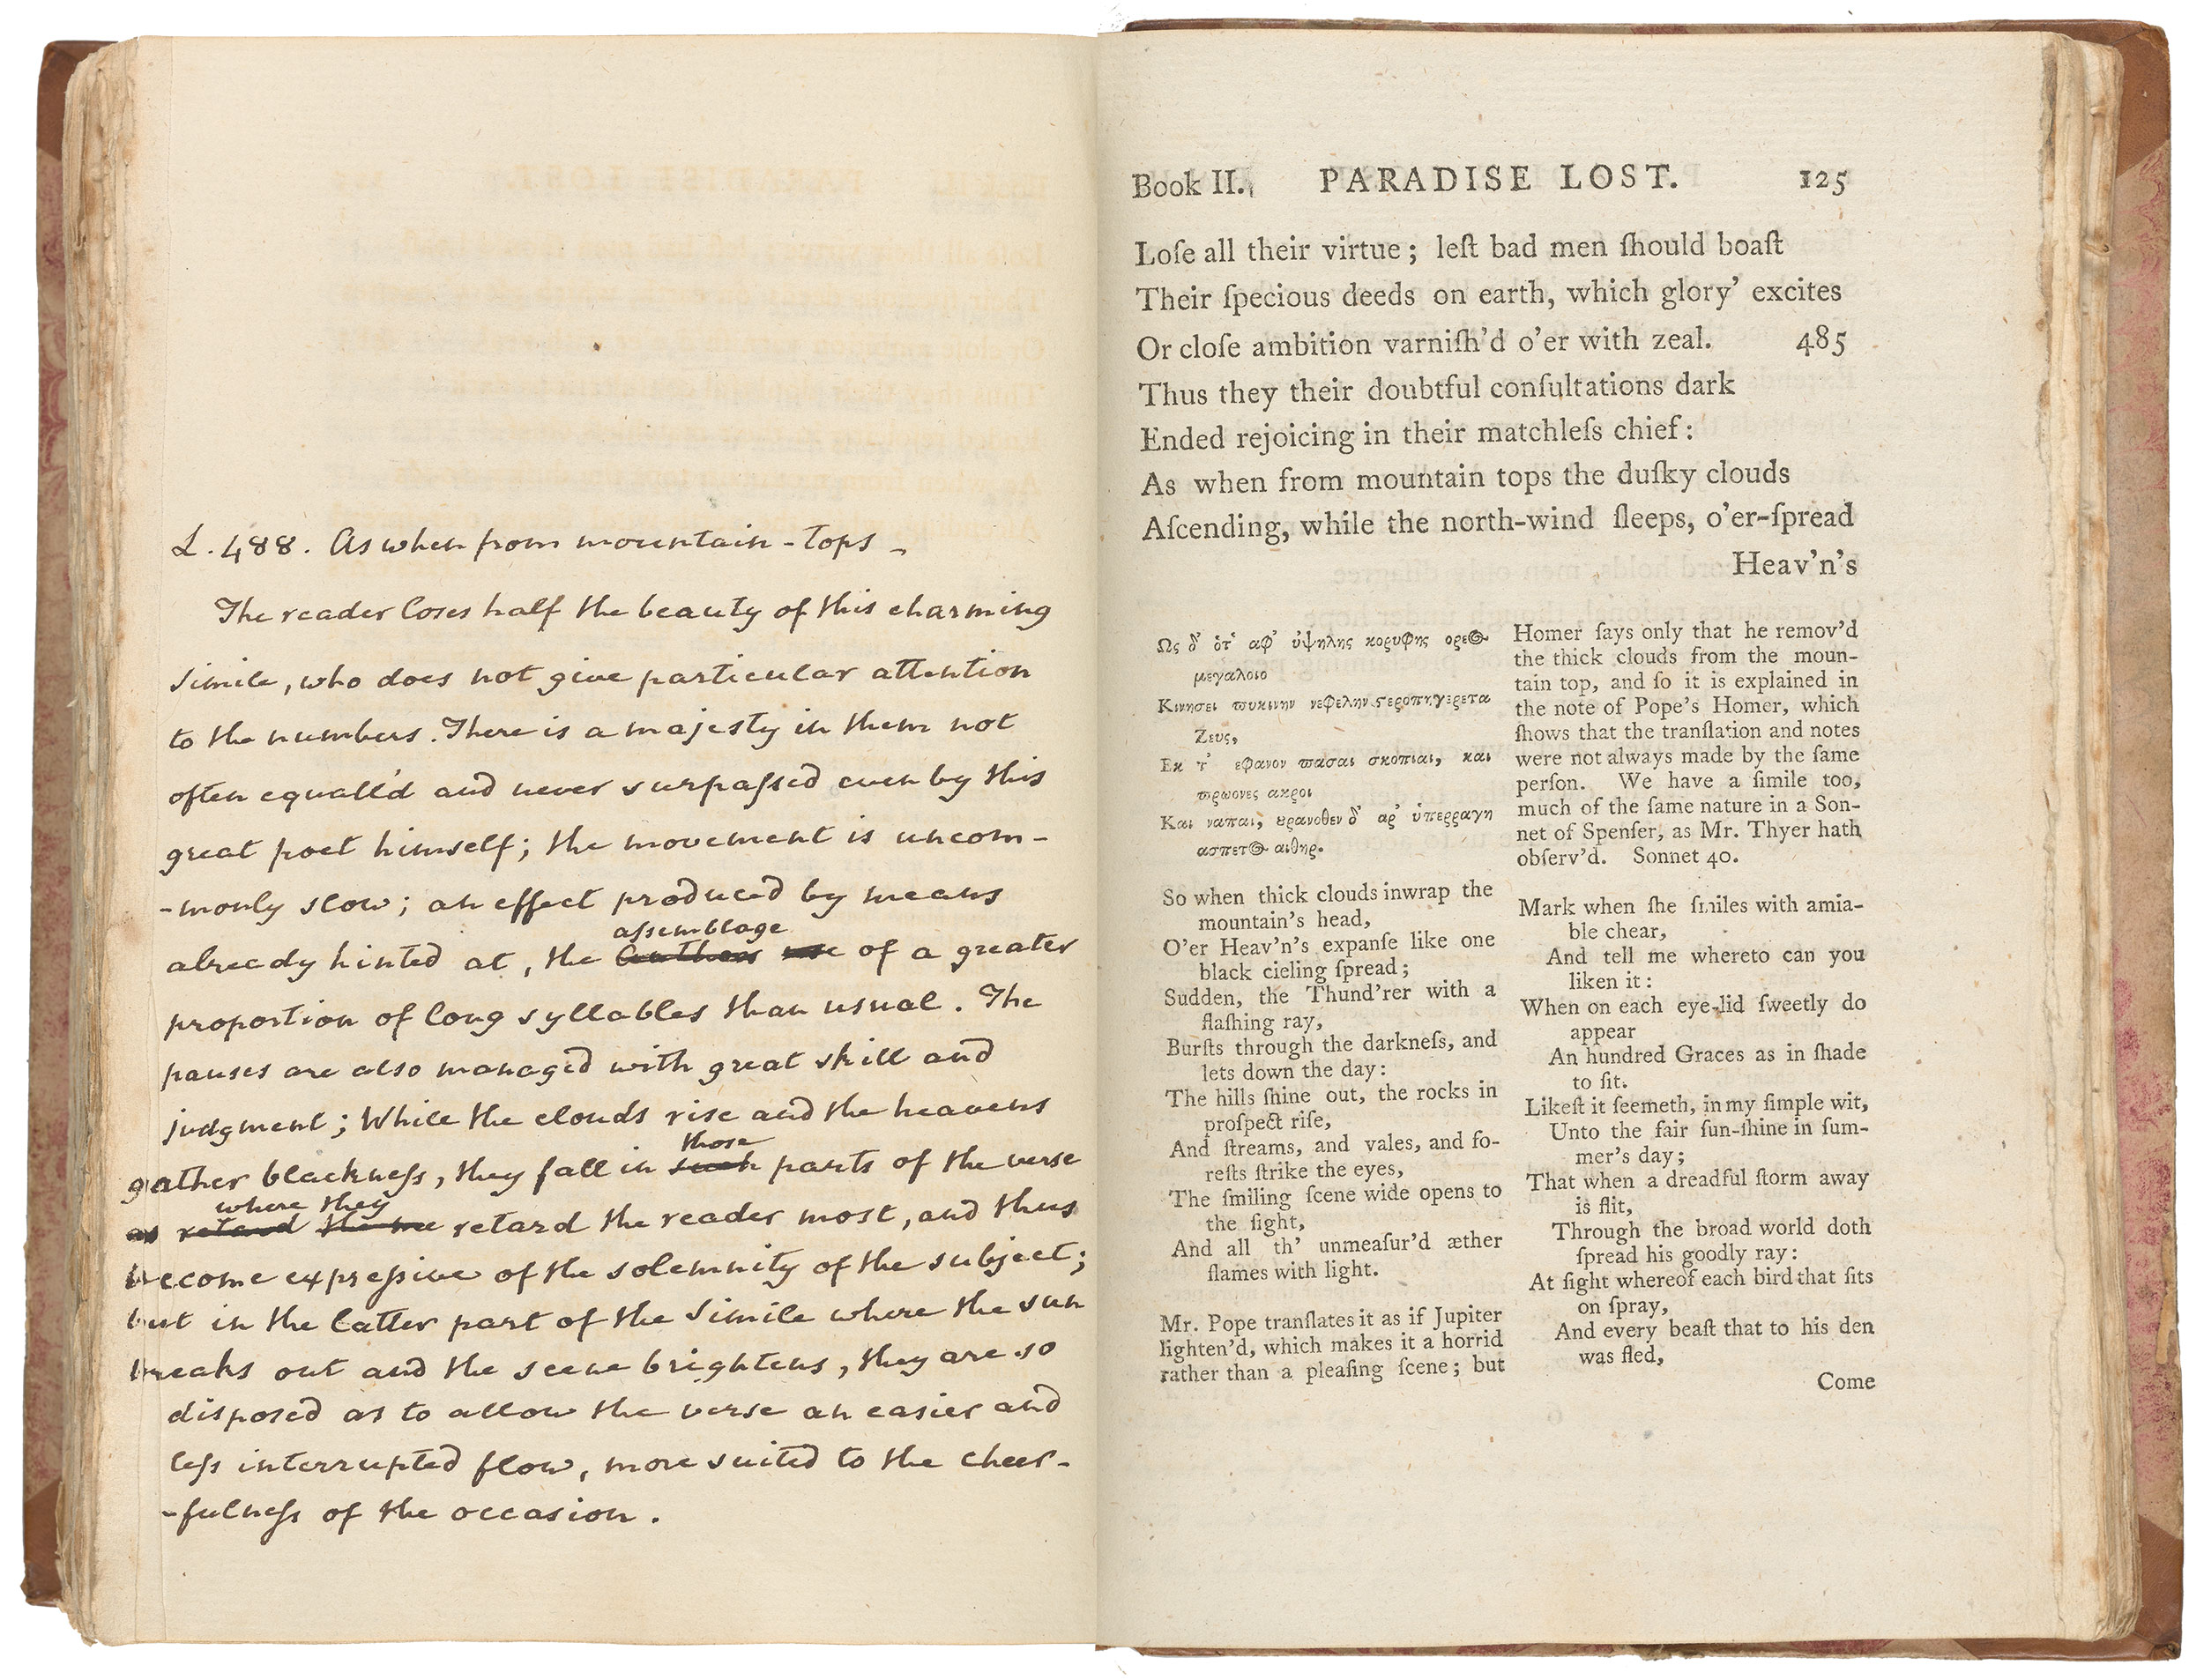 L. 488. As when from mountain-tops -
The reader loses half the beauty of this charming
simile, who does not give particular attention
to the numbers. There is a majesty in them not
often equall'd and never surpaſsed even by this
great poet himself; the movement is uncom-
-monly slow; an effect produced by means
assemblage
already hinted at, the of a greater
proportion of long syllables than usual. The
pauses are also managed with great skill and
judgment; While the clouds rise and the heavens
those
gather blackneſs, they fall in such parts of the verse
where they
as retard retard the reader most, and thus
become expreſsive of the solemnity of the subject;
but in the latter part of the simile where the sun
breaks out and the scene brightens, they are so
disposed as to allow the verse an easier and
leſs interrupted flow, more suited to the cheer-
-fulneſs of the occasion.
Book II. PARADISE LOST. 125
Loſe all their virtue; leſt bad men ſhould boaſt
Their ſpecious deeds on earth, which glory' excites
Or cloſe ambition varniſh'd o'er with zeal. 485
Thus they their doubtful conſultations dark
Ended rejoicing in their matchleſs chief:
As when from mountain tops the duſky clouds
Aſcending, while the north-wind ſleeps, o'er-ſpread
Heav'n's
Ως δ' ὁτ' αφ' ὑψηλης κορυφης ορεος
μεγαλοιο
Κινησει πυκινην νεφελην στεροπηγερετα
Ζευς,
Εκ τ' εφανον πασαι σκοπιαι, και
πρωονες ακροι
Και ναπαι, ȣρανοθεν δ' αρ' ὑπερραγη
ασπετος αιθηρ.
So when thick clouds inwrap the
mountain's head,
O'er Heav'n's expanſe like one
black cieling ſpread;
Sudden, the Thund'rer with a
flaſhing ray,
Burſts through the darkneſs, and
lets down the day:
The hills ſhine out, the rocks in
proſpect riſe,
And ſtreams, and vales, and fo-
reſts ſtrike the eyes,
The ſmiling ſcene wide opens to
the ſight,
And all th' unmeaſur'd æther
flames with light.
Mr. Pope tranſlates it as if Jupiter
lighten'd, which makes it a horrid
rather than a pleaſing ſcene; but
Homer ſays only that he remov'd
the thick clouds from the moun-
tain top, and ſo it is explained in
the note of Pope's Homer, which
ſhows that the tranſlation and notes
were not always made by the ſame
perſon. We have a ſimile too,
much of the ſame nature in a Son-
net of Spenſer, as Mr. Thyer hath
obſerv'd. Sonnet 40.
Mark when ſhe ſmiles with amia-
ble chear,
And tell me whereto can you
liken it:
When on each eye-lid ſweetly do
appear
An hundred Graces as in ſhade
to ſit.
Likeſt it ſeemeth, in my ſimple wit,
Unto the fair ſun-ſhine in ſum-
mer's day;
That when a dreadful ſtorm away
is flit,
Through the broad world doth
ſpread his goodly ray:
At ſight whereof each bird that ſits
on ſpray,
And every beaſt that to his den
was fled,
Come